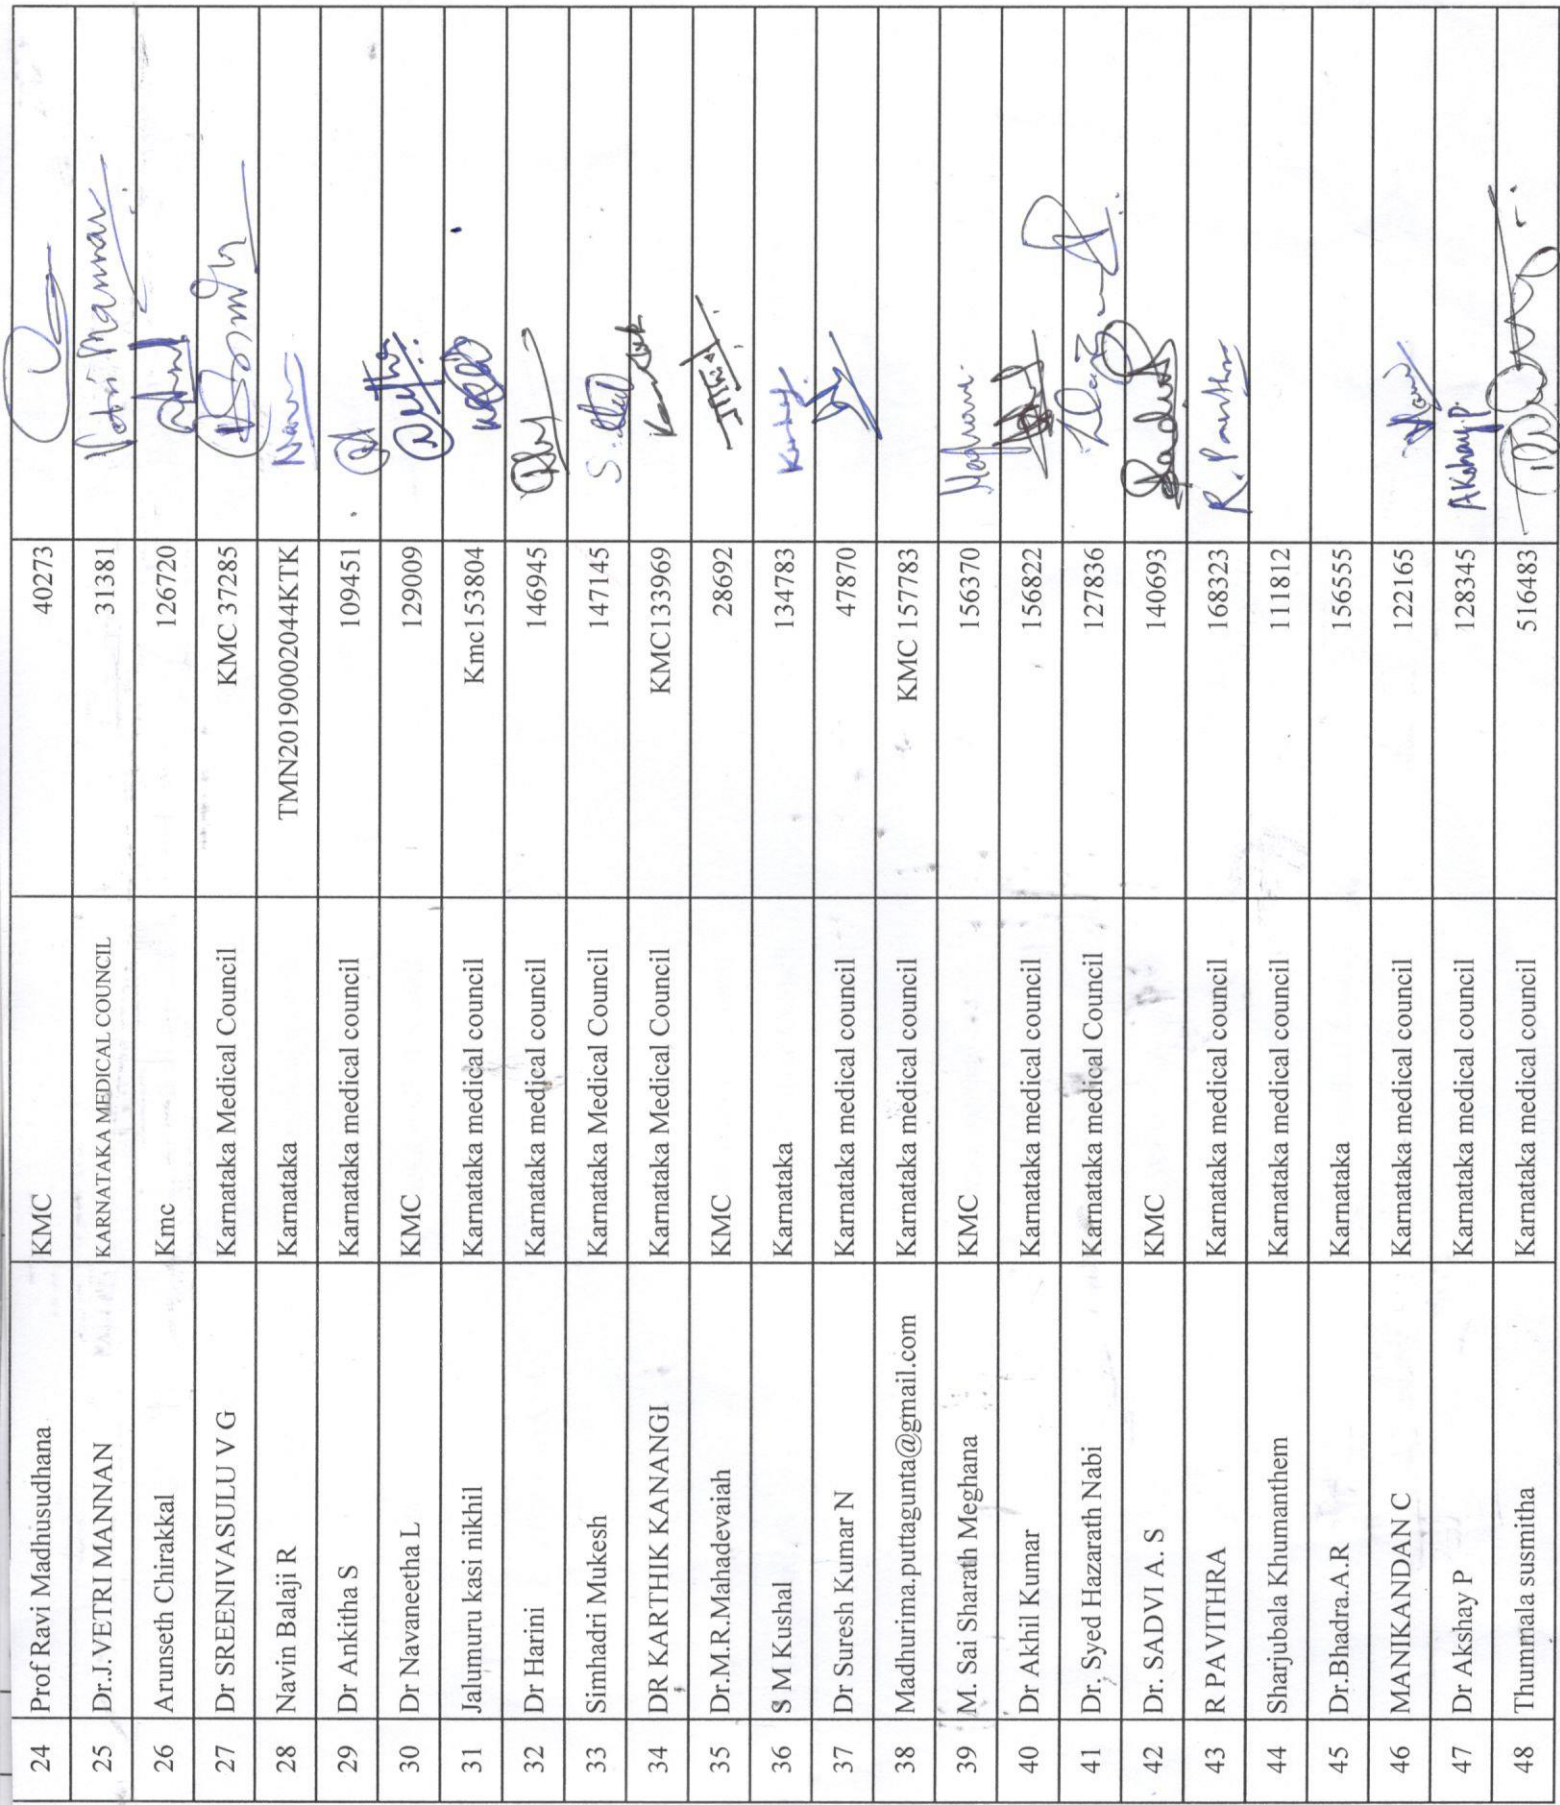 24 Prof Ravi Madhusudhana KMC 40273
25 Dr.J.VETRI MANNAN KARNATAKA MEDICAL COUNCIL 31381 Vetri Mannan
26 Arunseth Chirakkal Kmc 126720
27 Dr SREENIVASULU V G Karnataka Medical Council KMC 37285
28 Navin Balaji R Karnataka TMN20190002044KTK
29 Dr Ankitha S Karnataka medical council 109451
30 Dr Navaneetha L KMC 129009
31 Jalumuru kasi nikhil Karnataka medical council Kmc153804
32 Dr Harini Karnataka medical council 146945
33 Simhadri Mukesh Karnataka Medical Council 147145
34 DR KARTHIK KANANGI Karnataka Medical Council KMC133969
35 Dr.M.R.Mahadevaiah KMC 28692
36 S M Kushal Karnataka 134783
37 Dr Suresh Kumar N Karnataka medical council 47870
38 Madhurima.puttagunta@gmail.com Karnataka medical council KMC 157783
39 M. Sai Sharath Meghana KMC 156370
40 Dr Akhil Kumar Karnataka medical council 156822
41 Dr. Syed Hazarath Nabi Karnataka medical Council 127836
42 Dr. SADVI A. S KMC 140693
43 R PAVITHRA Karnataka medical council 168323 R. Pavithra
44 Sharjubala Khumanthem Karnataka medical council 111812
45 Dr.Bhadra.A.R Karnataka 156555
46 MANIKANDAN C Karnataka medical council 122165
47 Dr Akshay P Karnataka medical council 128345 Akshay.P.
48 Thummala susmitha Karnataka medical council 516483